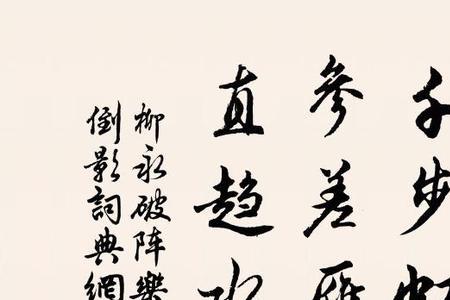 千步虹
參差雁
直趋水
柳永破阵樂
倒影詞典網